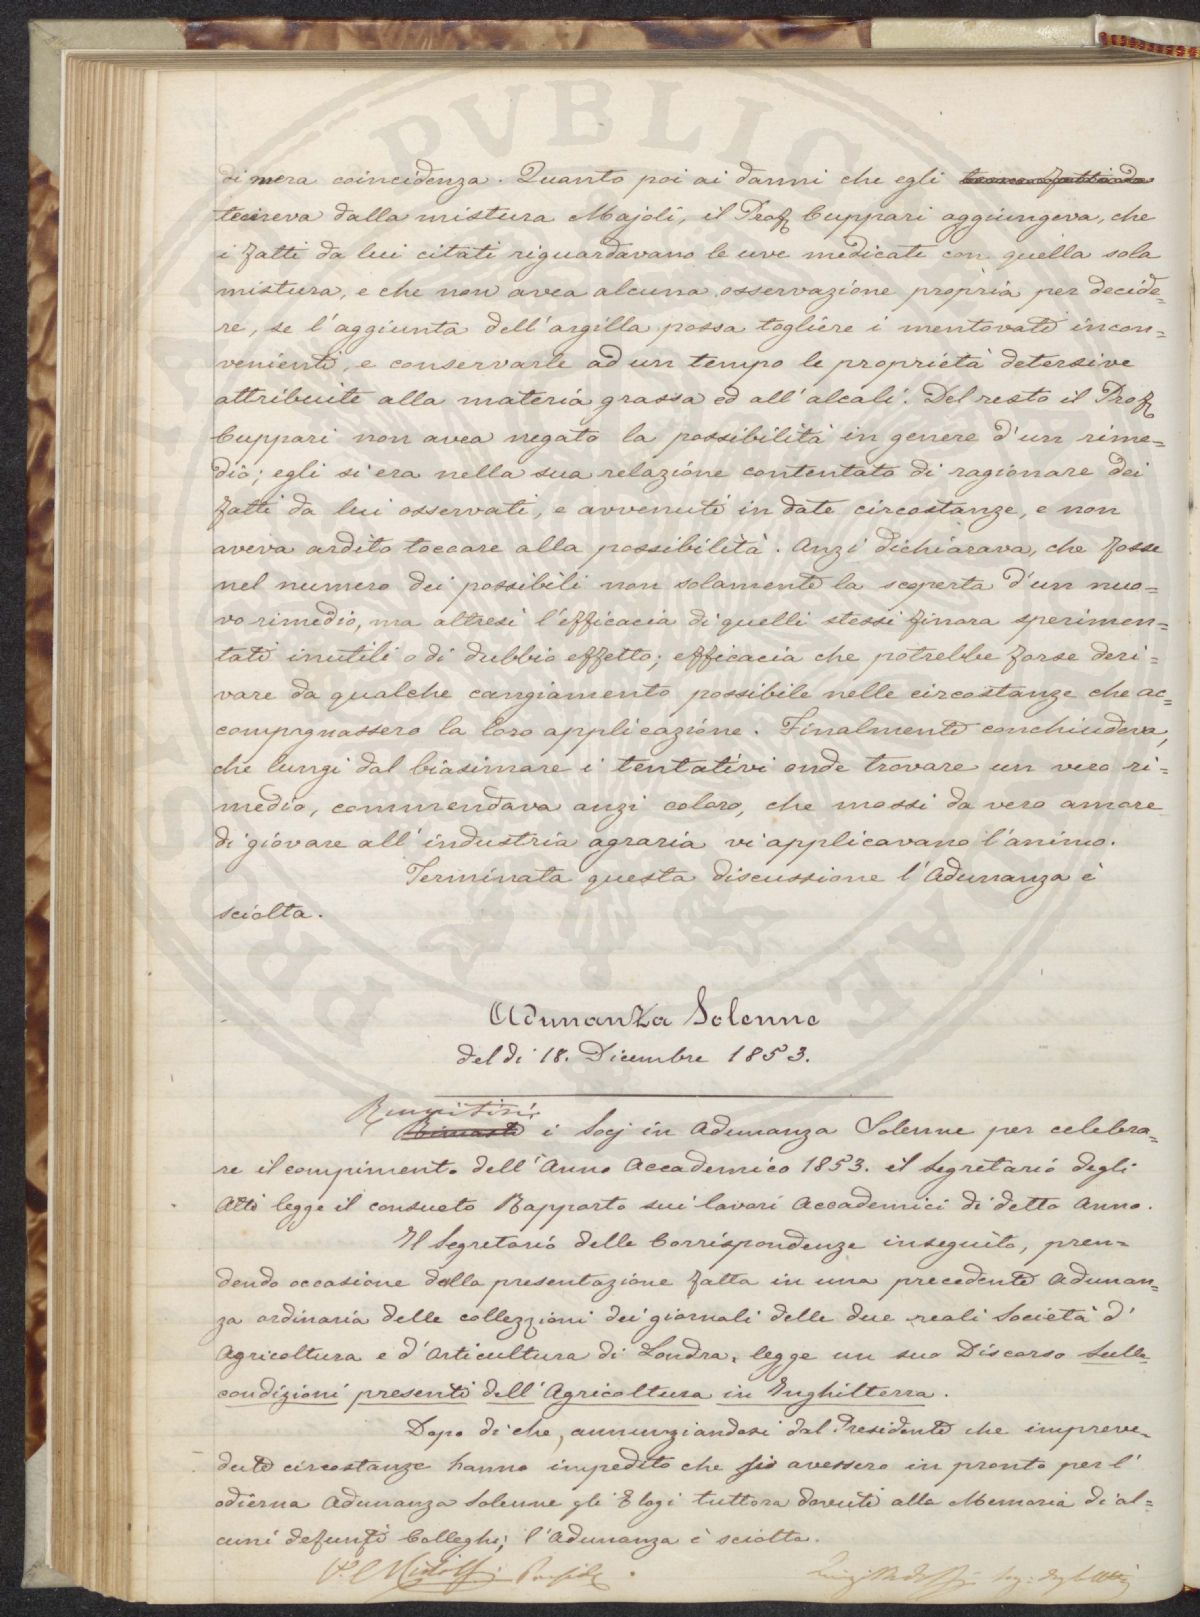 di mera coincidenza. Quanto poi ai danni che egli
temeva dalla mistura Majoli, il Prof Cuppari aggiungeva, che
i fatti da lui citati riguardavano le uve medicate con quella sola
mistura, e che non avea alcuna osservazione propria per decide=
re, se l'aggiunta dell'argilla possa togliere i mentovati incon=
venienti, e conservarle ad un tempo le proprietà detersive
attribuite alla materia grassa ed all'alcali. Del resto il Prof
Cuppari non avea negato la possibilità in genere d'un rime=
dio; egli si era nella sua relazione contentato di ragionare dei
fatti da lui osservati, e avvenuti in date circostanze, e non
aveva ardito toccare alla possibilità. Anzi dichiarava, che fosse
nel numero dei possibili non solamente la scoperta d'un nuo=
vo rimedio, ma altresì l'efficacia di quelli stessi finora sperimen=
tati inutili o di dubbio effetto; efficacia che potrebbe forse deri=
vare da qualche cangiamento possibile nelle circostanze che ac=
compagnassero la loro applicazione. Finalmente conchiudeva,
che lungi dal biasimare i tentativi onde trovare un vero ri=
medio, commendava anzi coloro, che mossi da vero amore
di giovare all'industria agraria vi applicavano l'animo.
Terminata questa discussione l'Adunanza è
sciolta.
Adunanza Solenne
del dì 18. Dicembre 1853.
Riunitisi
Rimasti i Socj in Adunanza Solenne per celebra=
re il compimento dell'Anno Accademico 1853. il Segretario degli
Atti legge il consueto Rapporto sui lavori Accademici di detto Anno.
Il Segretario delle Corrispondenze inseguito, pren=
dendo occasione dalla presentazione fatta in una precedente Adunan=
za ordinaria delle collezzioni dei giornali delle due reali Società d'
Agricoltura e d'Orticultura di Londra, legge un suo Discorso sulle
condizioni presenti dell'Agricoltura in Inghilterra.
Dopo di che, annunziandosi dal Presidente che impreve=
dute circostanze hanno impedito che si avessero in pronto per l'
odierna Adunanza Solenne gli Elogi tuttora dovuti alla Memoria di al=
cuni defunti Colleghi; l'Adunanza è sciolta.